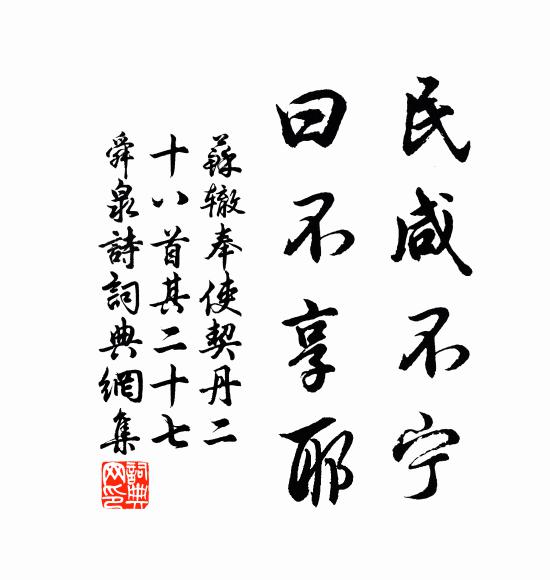 民咸不宁
曰不享耶
蘇辙奉使契丹二
十八首其二十七
舜泉詩詞典網集
詞典网印